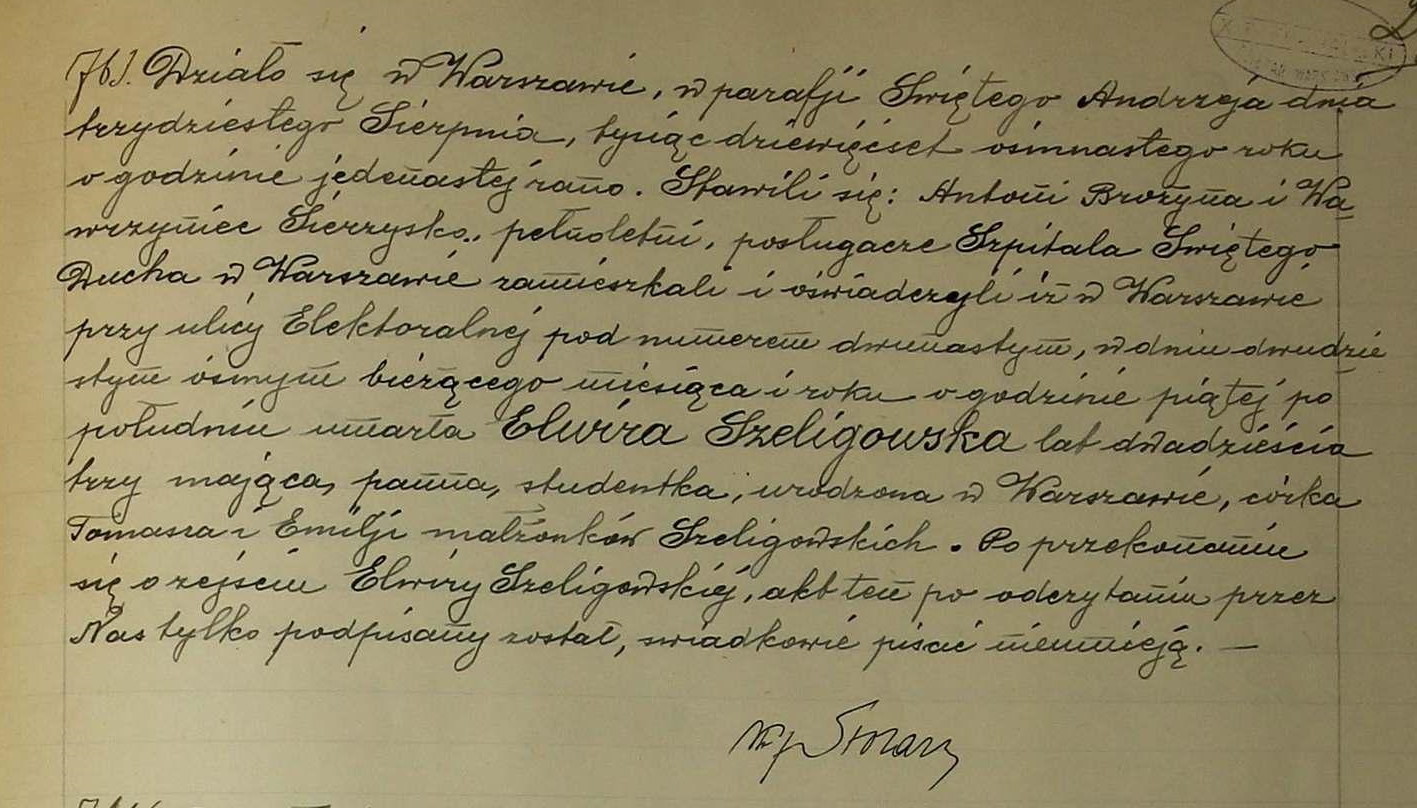 761. Działo się w Warszawie, w parafji Świętego Andrzeja dnia
trzydziestego Sierpnia, tysiąc dziewięćset ośmnastego roku
o godzinie jedenastej rano. Stawili się: Antoni Brożyna i Wa-
wrzyniec Sierzysko, pełnoletni, posługacze Szpitala Świętego
Ducha w Warszawie zamieszkali i oświadczyli iż w Warszawie
przy ulicy Elektoralnej pod numerem dwunastym, w dniu dwudzie
stym ósmym bieżącego miesiąca i roku o godzinie piątej po
południu umarła Elwira Szeligowska lat dwadzieścia
trzy mająca, panna, studentka, urodzona w Warszawie, córka
Tomasza i Emilji małżonków Szeligowskich. Po przekonaniu
się o zejściu Elwiry Szeligowskiej, akt ten po odczytaniu przez
Nas tylko podpisany został, świadkowie pisać nieumieją. —